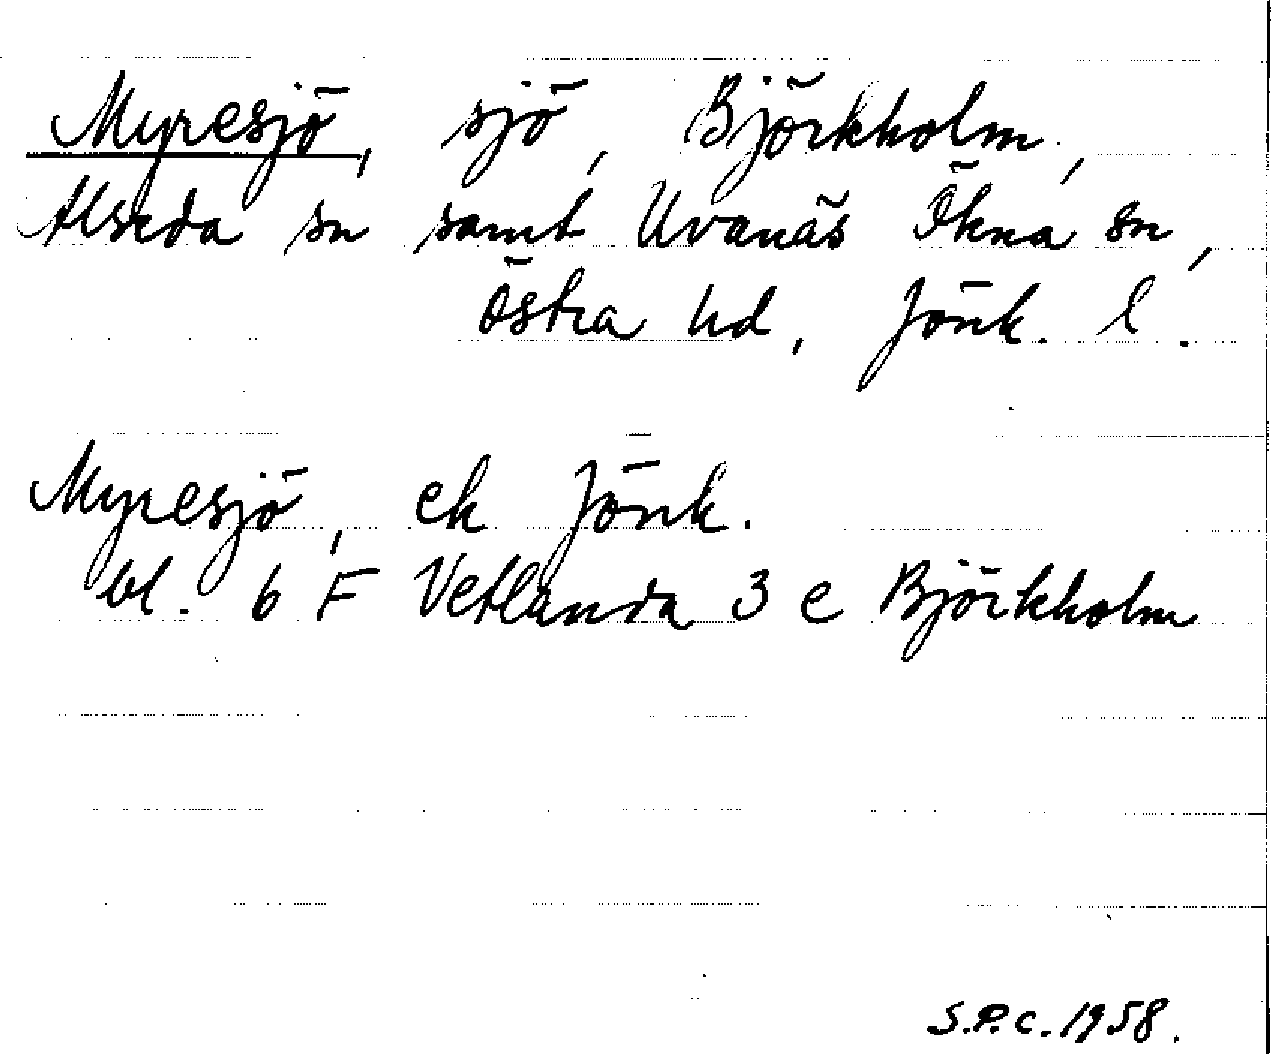 Myresjö, sjö, Björkholm,
Alseda sn samt Uvanäs Ökna sn,
Östra hd, Jönk. l.
Myresjö, ek Jönk.
bl. 6 F Vetlanda 3 e Björkholm
S.P.C. 1958.